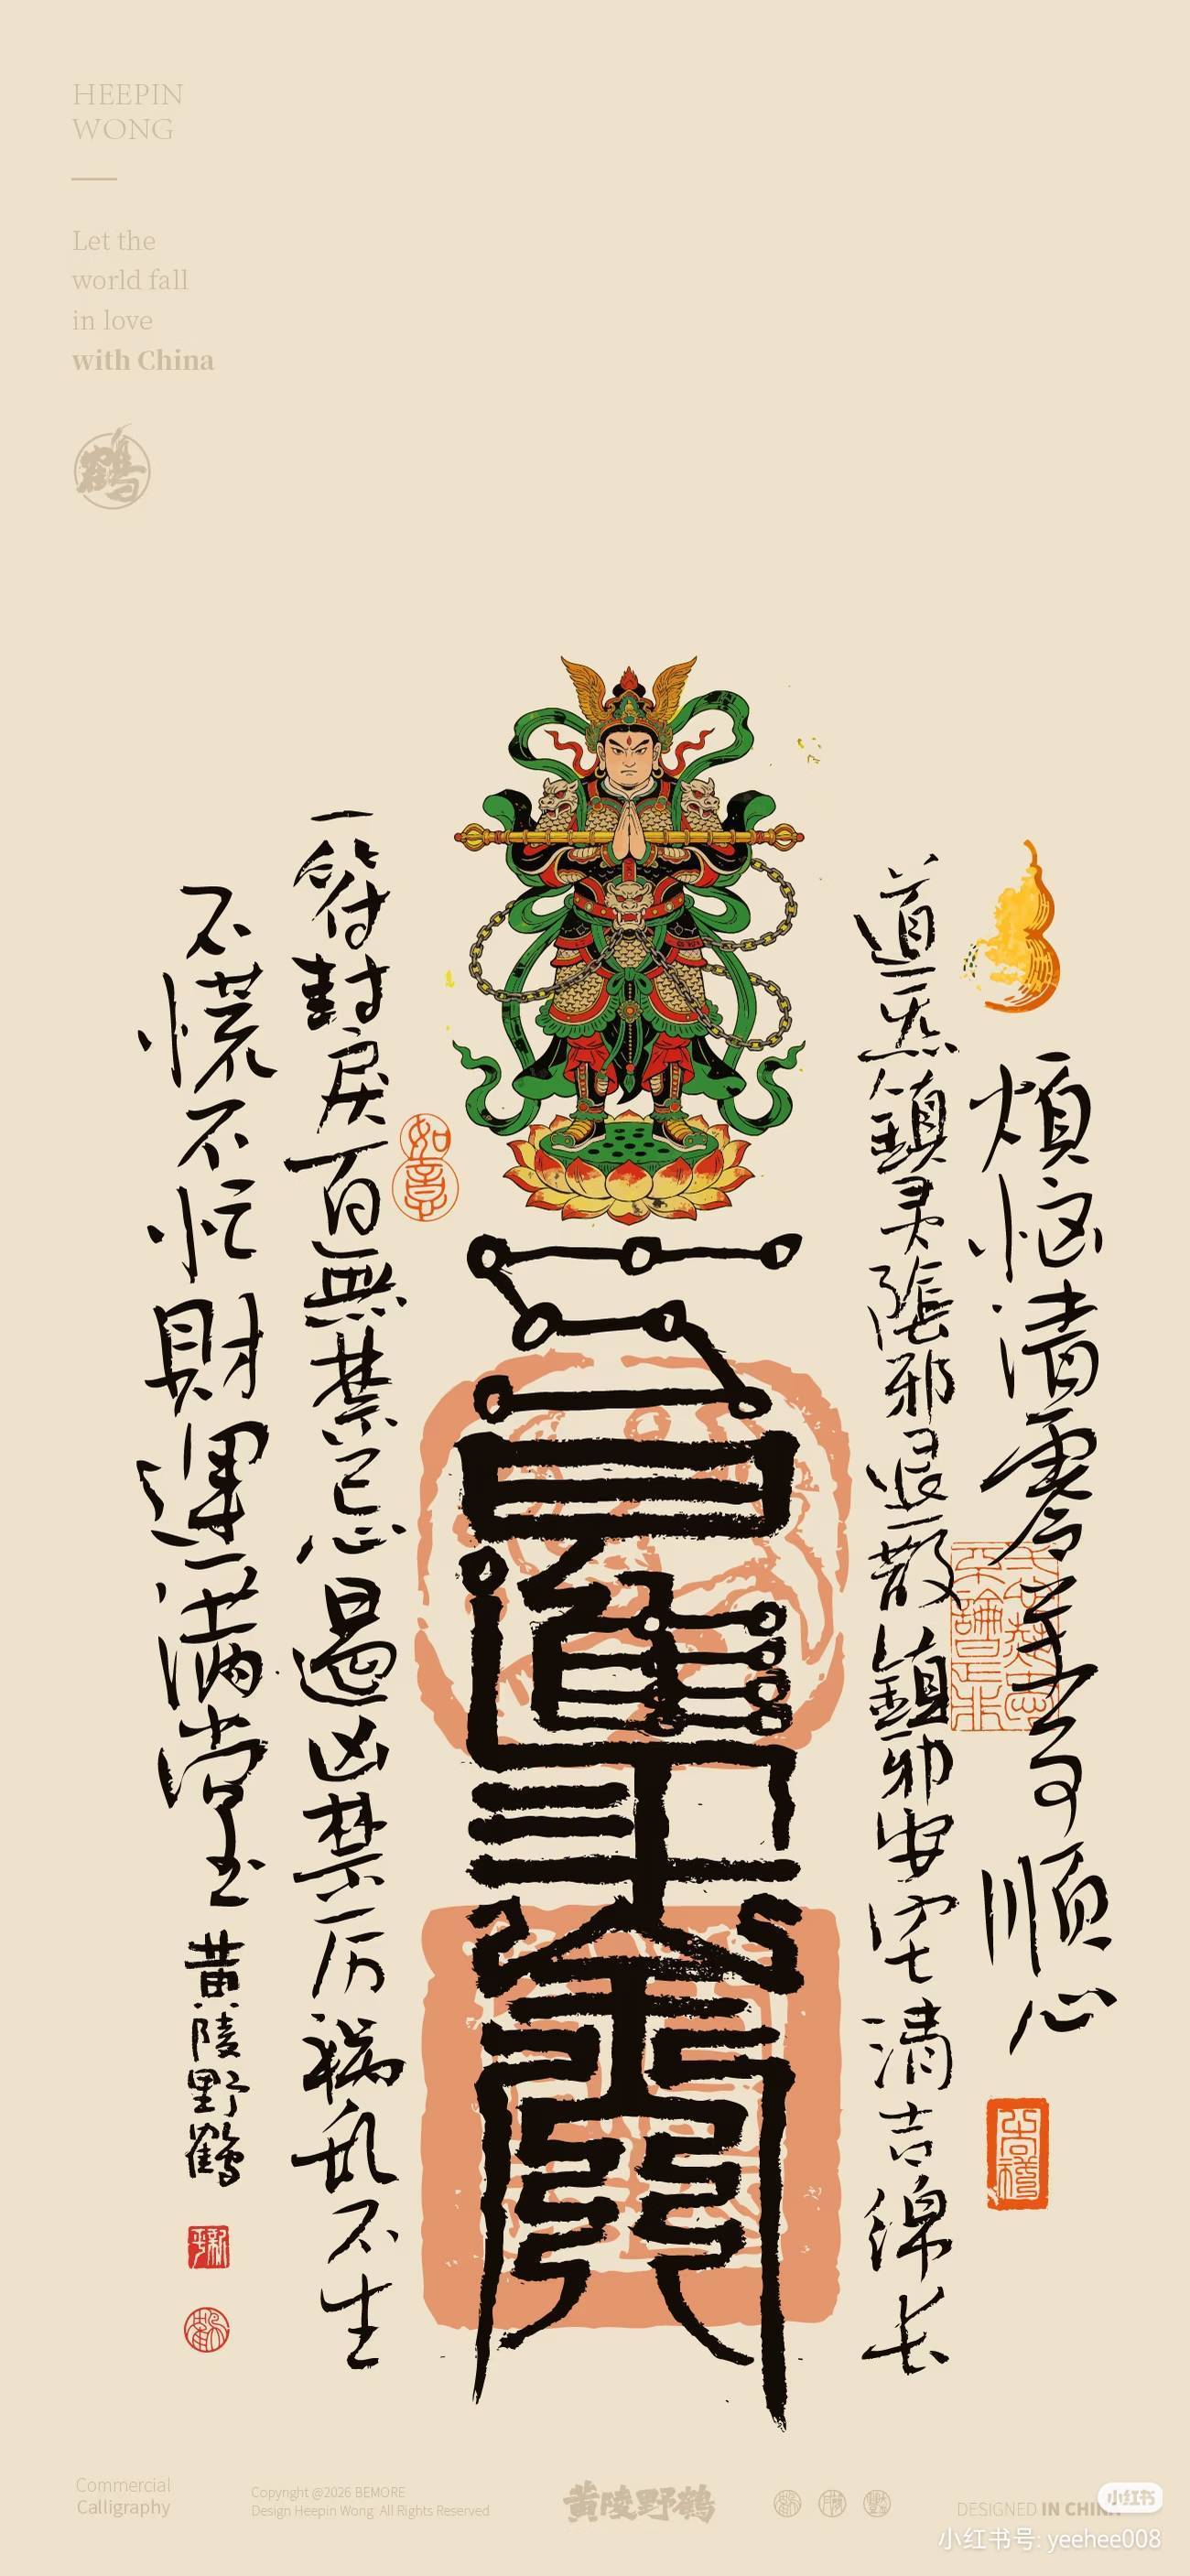 HEEPIN
WONG
Let the
world fall
in love
with China
鶴
煩惱清零順心
道炁鎮灵陰邪退散鎮邪安宅清吉綿长
如意
一符封戾百無禁忌遇凶禁厉祸乱不生
不慌不忙財運满堂
黄陵野鶴
Commercial
Calligraphy
Copyright @2026 BEMORE
Design Heepin Wong All Rights Reserved
黄陵野鶴
DESIGNED IN CHINA
小红书
小红书号: yeehee008